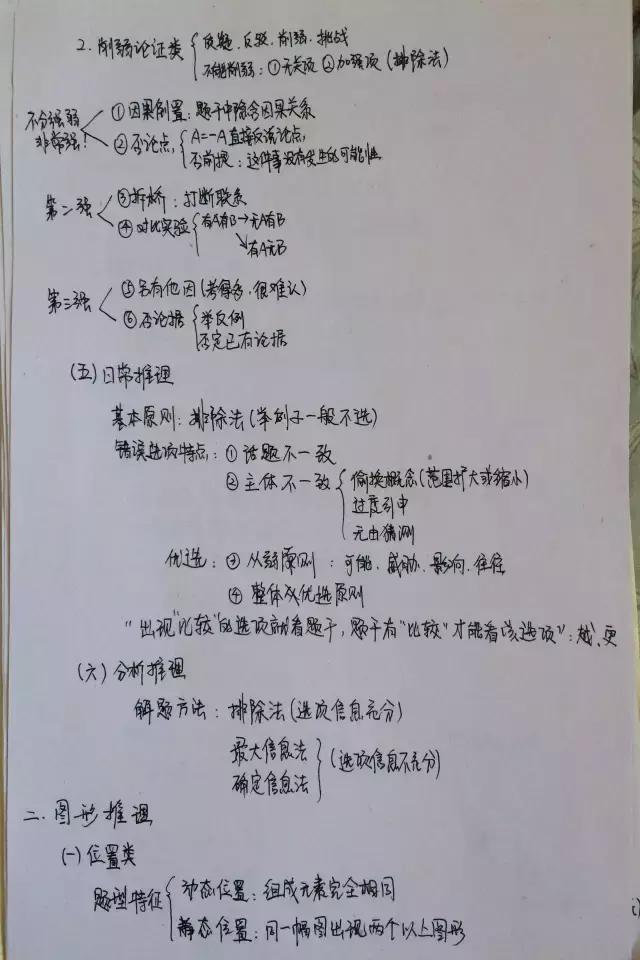 2. 削弱论证类 { 质疑、反驳、削弱、挑战
不能削弱：①无关项 ②加强项（排除法）
不分强弱 非常强！ ①因果倒置：题干中隐含因果关系
②否论点 { A=-A 直接反驳论点，
否前提：这件事没有发生的可能性
第二强 ③拆桥：打断联系
④对比实验 { 有A有B→无A有B
↘有A无B
第三强 ⑤另有他因（考得多，很难认）
⑥否论据 { 举反例
否定已有论据
（五）日常推理
基本原则：排除法（举例子一般不选）
错误选项特点：①话题不一致
②主体不一致 { 偷换概念（范围扩大或缩小）
过度引申
无由猜测
优选：③从弱原则：可能、威胁、影响、往往
④整体及优选原则
"出现"比较"的选项就看题干，题干有"比较"才能看该选项"：越、更
（六）分析推理
解题方法：排除法（选项信息充分）
最大信息法
确定信息法 }（选项信息不充分）
二. 图形推理
（一）位置类
题型特征 { 动态位置：组成元素完全相同
静态位置：同一幅图出现两个以上图形